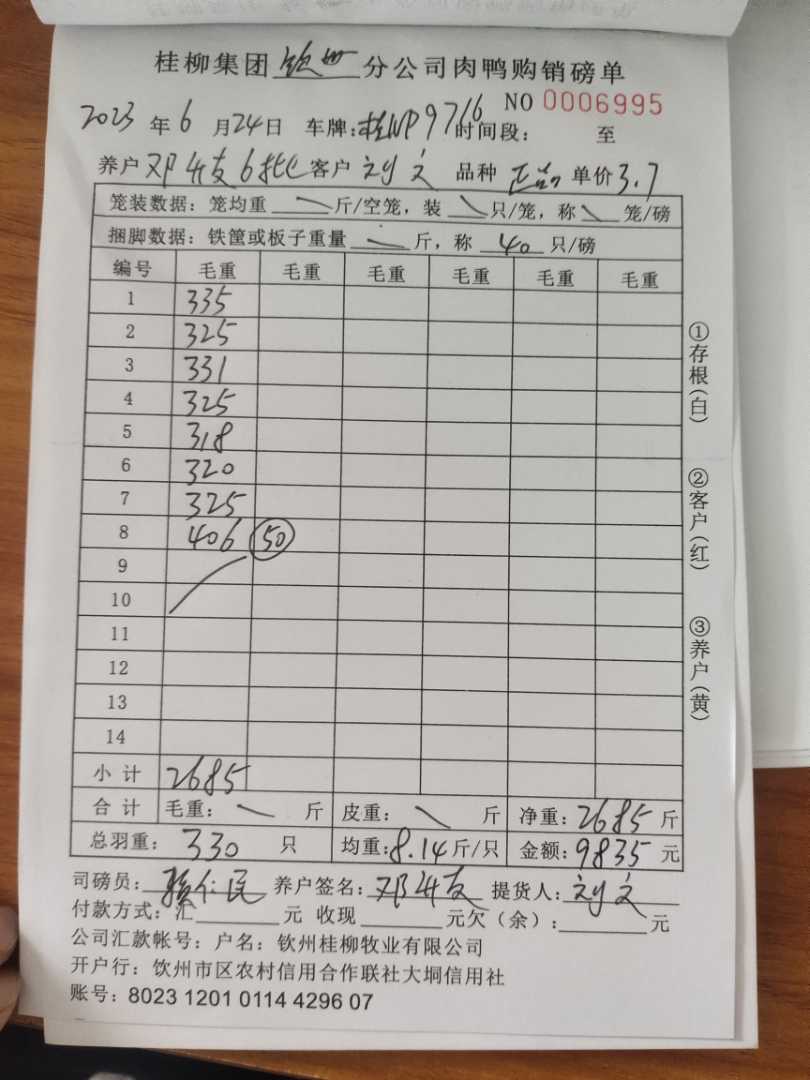 桂柳集团钦州分公司肉鸭购销磅单
NO 0006995
2023年6月24日 车牌:桂NP9766 时间段: 至
养户 邓升友6批 客户 刘文 品种 正品 单价3.7
笼装数据:笼均重 斤/空笼,装 只/笼,称 笼/磅
捆脚数据:铁筐或板子重量 斤,称 40 只/磅
编号 毛重 毛重 毛重 毛重 毛重 毛重
1 335
2 325
3 331
4 325
5 318
6 320
7 325
8 406 50
9
10
11
12
13
14
小计 2685
合计 毛重: 斤 皮重: 斤 净重:2685斤
总羽重:330 只 均重:8.14斤/只 金额:9835元
司磅员: 仁民 养户签名:邓升友 提货人:刘文
付款方式:汇 元 收现 元欠(余): 元
公司汇款帐号:户名:钦州桂柳牧业有限公司
开户行:钦州市区农村信用合作联社大垌信用社
账号:8023 1201 0114 4296 07
①存根(白)
②客户(红)
③养户(黄)